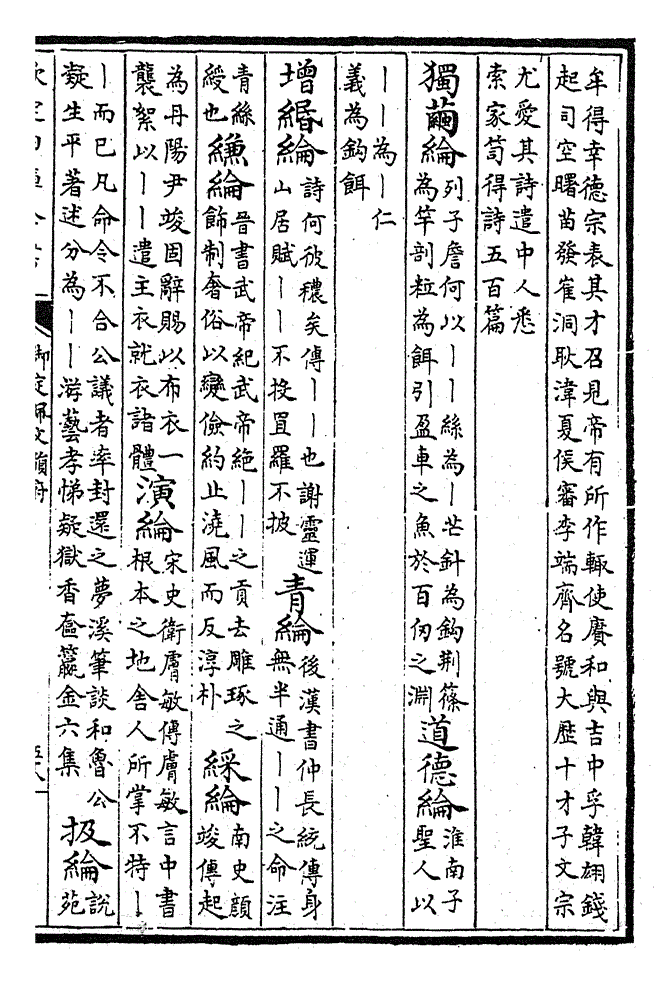 牟得幸德宗表其才召見帝有所作輒使賡和與吉中孚韓翃錢
起司空曙苗發崔洞耿湋夏侯審李端齊名號大歴十才子文宗
尤愛其詩遣中人悉
索家笥得詩五百篇
獨繭綸
列子詹何以丨丨絲為丨芒針為鈎荆篠
為竿剖粒為餌引盈車之魚於百仞之淵
道德綸
淮南子
聖人以
丨丨為丨仁
義為鈎餌
增緡綸
詩何彼穠矣傳丨丨也謝靈運
山居賦丨丨不投罝羅不披
青綸
後漢書仲長統傳身
無半通丨丨之命注
青絲
綬也
縑綸
晉書武帝紀武帝絶丨丨之貢去雕琢之
飾制奢俗以變儉約止澆風而反淳朴
綵綸
南史顔
竣傳起
為丹陽尹竣固辭賜以布衣一
襲絮以丨丨遣主衣就衣諸體
演綸
宋史衛膚敏傳膚敏言中書
根本之地舍人所掌不特丨
丨而已凡命令不合公議者率封還之夢溪筆談和魯公
凝生平著述分為丨丨游藝孝悌疑獄香奩籯金六集
扱綸
說
苑
御定佩文韻府